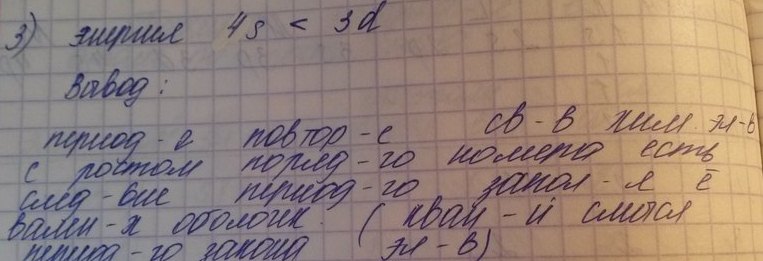 3) энергия 4s < 3d
Вывод:
период-е повтор-е св-в хим. эл-в
с ростом поряд-го номера есть
след-вие период-го запол-я ē
вален-х оболочек. (кван-й смысл
период-го закона эл-в)